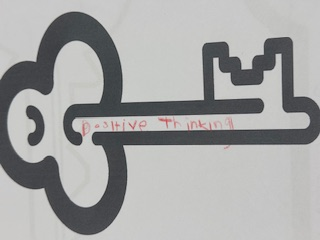 Positive Thinking